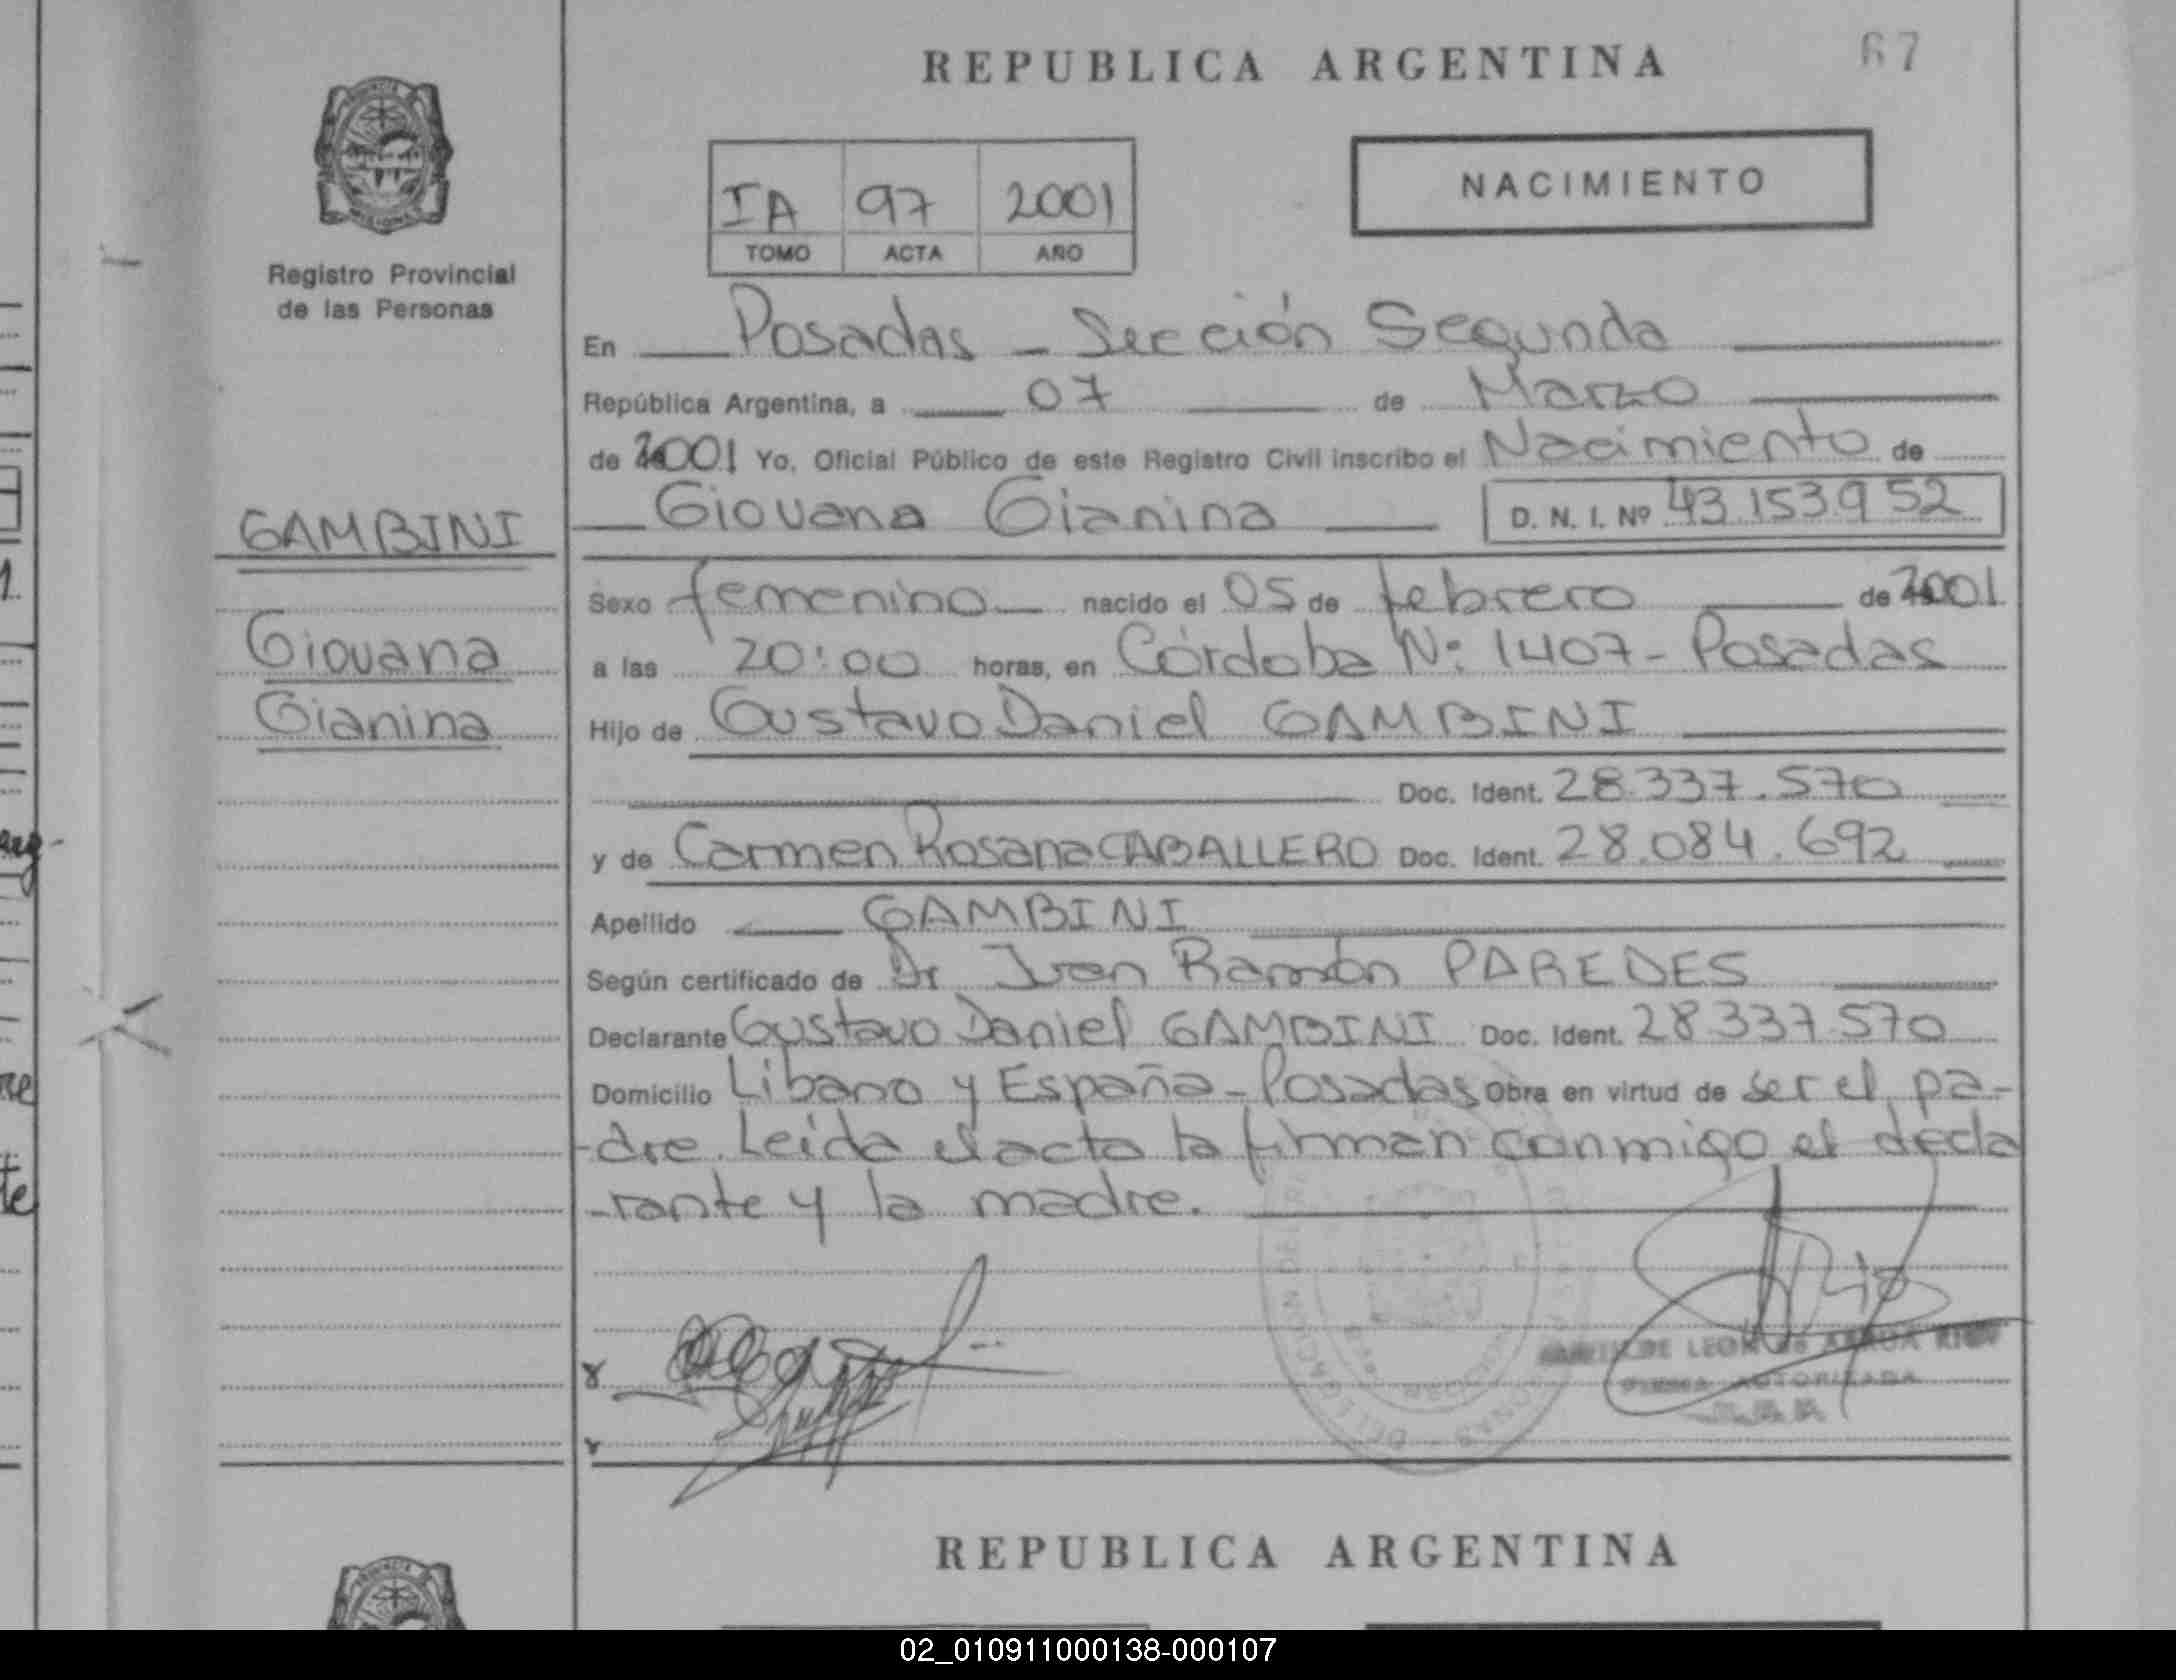 REPUBLICA ARGENTINA
67
NACIMIENTO
IA 97 2001
TOMO ACTA AÑO
Registro Provincial
de las Personas
GAMBINI
Giovana
Gianina
En Posadas - Sección Segunda
República Argentina, a 07 de Marzo
de 2001 Yo, Oficial Público de este Registro Civil inscribo el Nacimiento de
Giovana Gianina D. N. I. Nº 43.153.952
Sexo femenino nacido el 05 de febrero de 2001
a las 20:00 horas, en Córdoba Nº 1407 - Posadas
Hijo de Gustavo Daniel GAMBINI
Doc. Ident. 28.337.570
y de Carmen Rosana CABALLERO Doc. Ident. 28.084.692
Apellido GAMBINI
Según certificado de Dr Ramón PAREDES
Declarante Gustavo Daniel GAMBINI Doc. Ident. 28.337.570
Domicilio Libano y España - Posadas Obra en virtud de ser el pa-
-dre. Leida el acta la firman conmigo el decla
-rante y la madre.
DE LEON
FIRMA AUTORIZADA
REPUBLICA ARGENTINA
02_010911000138-000107